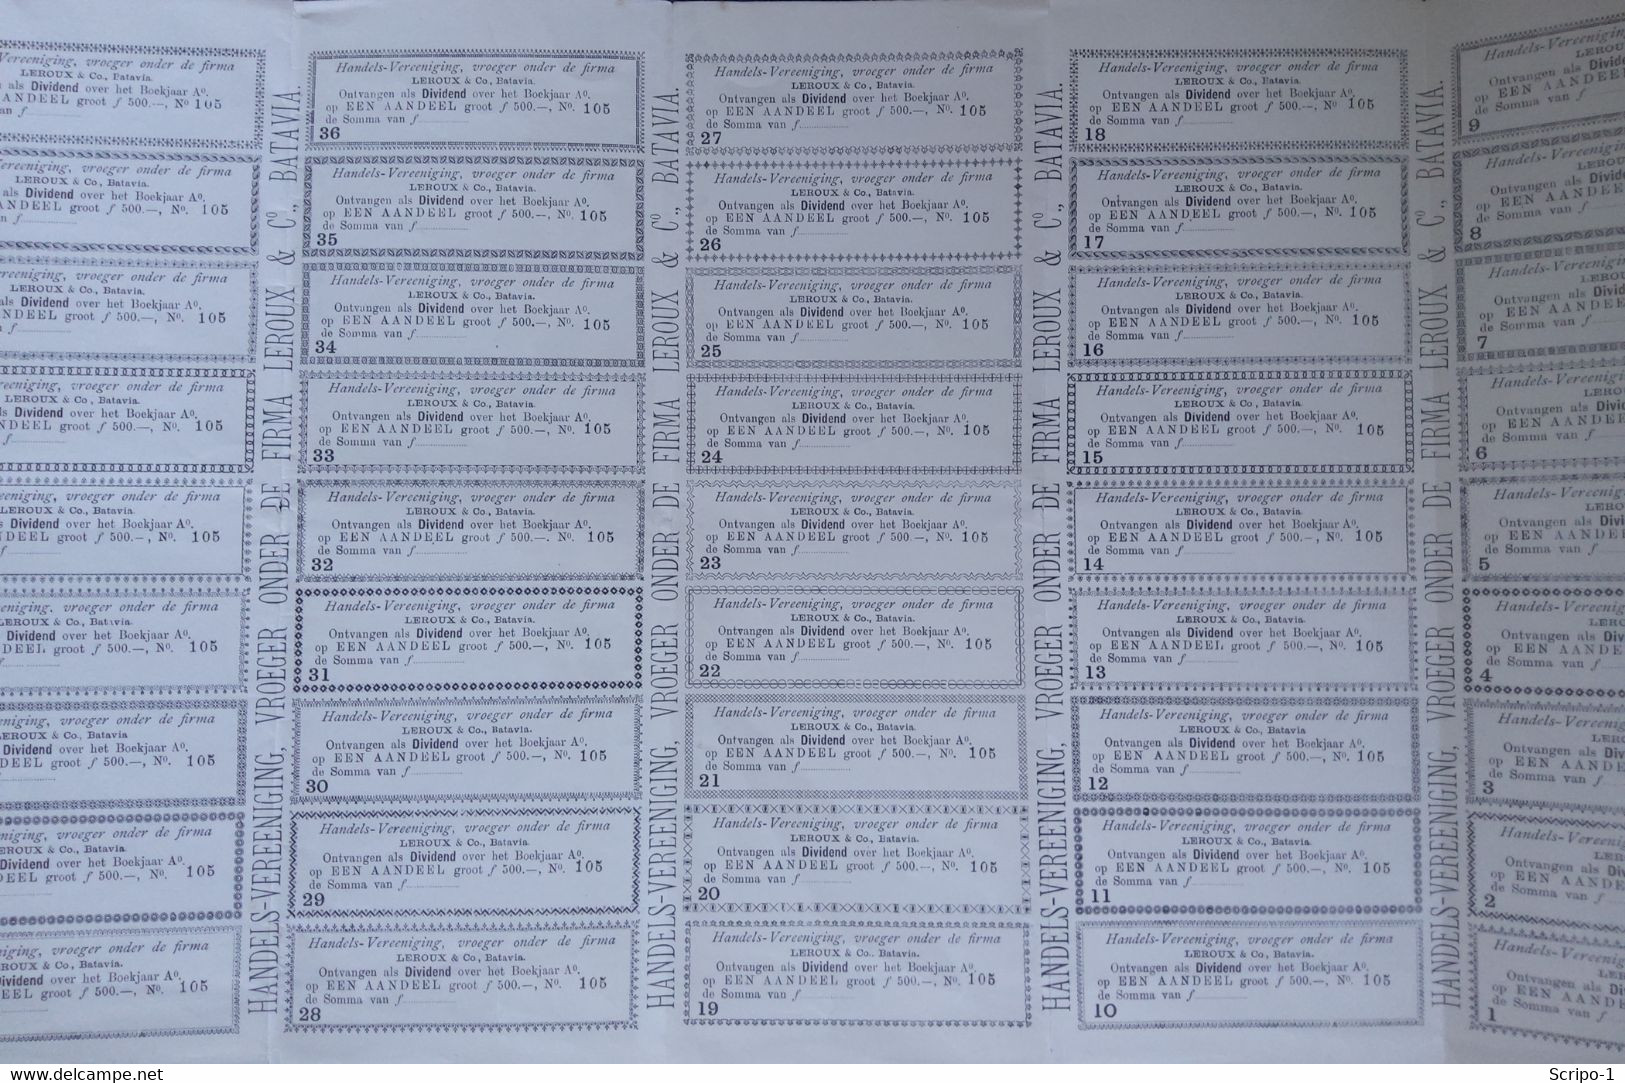 Vereeniging, vroeger onder de firma
LEROUX & Co., Batavia.
als Dividend over het Boekjaar A⁰.
groot f 500.—, N⁰ 105
an f
vroeger onder de firma
LEROUX & Co., Batavia.
als Dividend over het Boekjaar A⁰.
groot f 500.—, N⁰. 105
vroeger onder de firma
LEROUX & Co., Batavia.
als Dividend over het Boekjaar A⁰.
groot f 500.—, N⁰. 105
f
vroeger onder de firma
LEROUX & Co., Batavia.
Dividend over het Boekjaar A⁰.
groot f 500.—, N⁰. 105
f
vroeger onder de firma
LEROUX & Co., Batavia.
Dividend over het Boekjaar A⁰.
groot f 500.—, N⁰. 105
f
vroeger onder de firma
LEROUX & Co., Batavia.
Dividend over het Boekjaar A⁰.
groot f 500.—, N⁰. 105
f
vroeger onder de firma
LEROUX & Co., Batavia
Dividend over het Boekjaar A⁰.
groot f 500.—, N⁰. 105
vroeger onder de firma
Co., Batavia.
Dividend over het Boekjaar A⁰.
groot f 500.—, N⁰. 105
vroeger onder de firma
& Co., Batavia.
Dividend over het Boekjaar A⁰.
groot f 500.—, N⁰. 105
HANDELS-VEREENIGING, VROEGER ONDER DE FIRMA LEROUX & C⁰., BATAVIA.
Handels-Vereeniging, vroeger onder de firma
LEROUX & Co., Batavia.
Ontvangen als Dividend over het Boekjaar A⁰.
op EEN AANDEEL groot f 500.—, N⁰. 105
de Somma van f
36
Handels-Vereeniging, vroeger onder de firma
LEROUX & Co., Batavia.
Ontvangen als Dividend over het Boekjaar A⁰.
op EEN AANDEEL groot f 500.—, N⁰. 105
de Somma van f
35
Handels-Vereeniging, vroeger onder de firma
LEROUX & Co., Batavia.
Ontvangen als Dividend over het Boekjaar A⁰.
op EEN AANDEEL groot f 500.—, N⁰. 105
de Somma van f
34
Handels-Vereeniging, vroeger onder de firma
LEROUX & Co., Batavia.
Ontvangen als Dividend over het Boekjaar A⁰.
op EEN AANDEEL groot f 500.—, N⁰. 105
de Somma van f
33
Handels-Vereeniging, vroeger onder de firma
LEROUX & Co., Batavia.
Ontvangen als Dividend over het Boekjaar A⁰.
op EEN AANDEEL groot f 500.—, N⁰. 105
de Somma van f
32
Handels-Vereeniging, vroeger onder de firma
LEROUX & Co., Batavia.
Ontvangen als Dividend over het Boekjaar A⁰.
op EEN AANDEEL groot f 500.—, N⁰. 105
de Somma van f
31
Handels-Vereeniging, vroeger onder de firma
LEROUX & Co., Batavia.
Ontvangen als Dividend over het Boekjaar A⁰.
op EEN AANDEEL groot f 500.—, N⁰. 105
de Somma van f
30
Handels-Vereeniging, vroeger onder de firma
LEROUX & Co., Batavia.
Ontvangen als Dividend over het Boekjaar A⁰.
op EEN AANDEEL groot f 500.—, N⁰. 105
de Somma van f
29
Handels-Vereeniging, vroeger onder de firma
LEROUX & Co., Batavia.
Ontvangen als Dividend over het Boekjaar A⁰.
op EEN AANDEEL groot f 500.—, N⁰. 105
de Somma van f
28
HANDELS-VEREENIGING, VROEGER ONDER DE FIRMA LEROUX & C⁰., BATAVIA.
Handels-Vereeniging, vroeger onder de firma
LEROUX & Co., Batavia.
Ontvangen als Dividend over het Boekjaar A⁰.
op EEN AANDEEL groot f 500.—, N⁰. 105
de Somma van f
27
Handels-Vereeniging, vroeger onder de firma
LEROUX & Co., Batavia.
Ontvangen als Dividend over het Boekjaar A⁰.
op EEN AANDEEL groot f 500.—, N⁰. 105
de Somma van f
26
Handels-Vereeniging, vroeger onder de firma
LEROUX & Co., Batavia.
Ontvangen als Dividend over het Boekjaar A⁰.
op EEN AANDEEL groot f 500.—, N⁰. 105
de Somma van f
25
Handels-Vereeniging, vroeger onder de firma
LEROUX & Co., Batavia.
Ontvangen als Dividend over het Boekjaar A⁰.
op EEN AANDEEL groot f 500.—, N⁰. 105
de Somma van f
24
Handels-Vereeniging, vroeger onder de firma
LEROUX & Co., Batavia.
Ontvangen als Dividend over het Boekjaar A⁰.
op EEN AANDEEL groot f 500.—, N⁰. 105
de Somma van f
23
Handels-Vereeniging, vroeger onder de firma
LEROUX & Co., Batavia.
Ontvangen als Dividend over het Boekjaar A⁰.
op EEN AANDEEL groot f 500.—, N⁰. 105
de Somma van f
22
Handels-Vereeniging, vroeger onder de firma
LEROUX & Co., Batavia.
Ontvangen als Dividend over het Boekjaar A⁰.
op EEN AANDEEL groot f 500.—, N⁰. 105
de Somma van f
21
Handels-Vereeniging, vroeger onder de firma
LEROUX & Co., Batavia.
Ontvangen als Dividend over het Boekjaar A⁰.
op EEN AANDEEL groot f 500.—, N⁰. 105
de Somma van f
20
Handels-Vereeniging, vroeger onder de firma
LEROUX & Co.. Batavia.
Ontvangen als Dividend over het Boekjaar A⁰.
op EEN AANDEEL groot f 500.—, N⁰. 105
de Somma van f
19
HANDELS-VEREENIGING, VROEGER ONDER DE FIRMA LEROUX & C⁰., BATAVIA.
Handels-Vereeniging, vroeger onder de firma
LEROUX & Co., Batavia.
Ontvangen als Dividend over het Boekjaar A⁰.
op EEN AANDEEL groot f 500.—, N⁰. 105
de Somma van f
18
Handels-Vereeniging, vroeger onder de firma
LEROUX & Co., Batavia.
Ontvangen als Dividend over het Boekjaar A⁰.
op EEN AANDEEL groot f 500.—, N⁰. 105
de Somma van f
17
Handels-Vereeniging, vroeger onder de firma
LEROUX & Co., Batavia.
Ontvangen als Dividend over het Boekjaar A⁰.
op EEN AANDEEL groot f 500.—, N⁰. 105
de Somma van f
16
Handels-Vereeniging, vroeger onder de firma
LEROUX & Co., Batavia.
Ontvangen als Dividend over het Boekjaar A⁰.
op EEN AANDEEL groot f 500.—, N⁰. 105
de Somma van f
15
Handels-Vereeniging, vroeger onder de firma
LEROUX & Co., Batavia.
Ontvangen als Dividend over het Boekjaar A⁰.
op EEN AANDEEL groot f 500.—, N⁰. 105
de Somma van f
14
Handels-Vereeniging, vroeger onder de firma
LEROUX & Co., Batavia.
Ontvangen als Dividend over het Boekjaar A⁰.
op EEN AANDEEL groot f 500.—, N⁰. 105
de Somma van f
13
Handels-Vereeniging, vroeger onder de firma
LEROUX & Co., Batavia
Ontvangen als Dividend over het Boekjaar A⁰.
op EEN AANDEEL groot f 500.—, N⁰. 105
de Somma van f
12
Handels-Vereeniging, vroeger onder de firma
LEROUX & Co., Batavia.
Ontvangen als Dividend over het Boekjaar A⁰.
op EEN AANDEEL groot f 500.—, N⁰. 105
de Somma van f
11
Handels-Vereeniging, vroeger onder de firma
LEROUX & Co., Batavia.
Ontvangen als Dividend over het Boekjaar A⁰.
op EEN AANDEEL groot f 500.—, N⁰. 105
de Somma van f
10
HANDELS-VEREENIGING, VROEGER ONDER DE FIRMA LEROUX & C⁰., BATAVIA.
Handels-Vereeniging
LEROU
Ontvangen als Divid
op EEN AANDEE
de Somma van f
9
Handels-Vereenigin
LEROU
Ontvangen als Divid
op EEN AANDE
de Somma van f
8
Handels-Vereenigin
LEROU
Ontvangen als Divid
op EEN AANDE
de Somma van f
7
Handels-Vereenigi
LERO
Ontvangen als Divid
op EEN AANDE
de Somma van f
6
Handels-Vereenig
LERO
Ontvangen als Divi
op EEN AANDE
de Somma van f
5
Handels-Vereenig
LERO
Ontvangen als Div
op EEN AANDE
de Somma van f
4
Handels-Vereenig
LER
Ontvangen als Div
op EEN AAND
de Somma van f
3
Handels-Vereeni
LER
Ontvangen als Di
op EEN AAND
de Somma van f
2
Handels-Vereeni
LE
Ontvangen als Di
op EEN AAND
de Somma van f
1
www.delcampe.net
Scripo-1